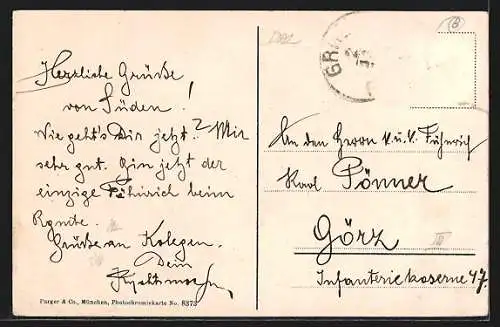 Herzliche Grüße
von Süden!
Wie geht's Dir jetzt? Mir
sehr gut. Bin jetzt der
einzige Fähnrich beim
Rgmte.
Grüße an Kolegen.
Dein
Purger & Co., München, Photochromiekarte No. 8373
GR
An den Herrn k. u. k. Fähnrich
Karl Pönner
Görz
Infanteriekaserne 47.